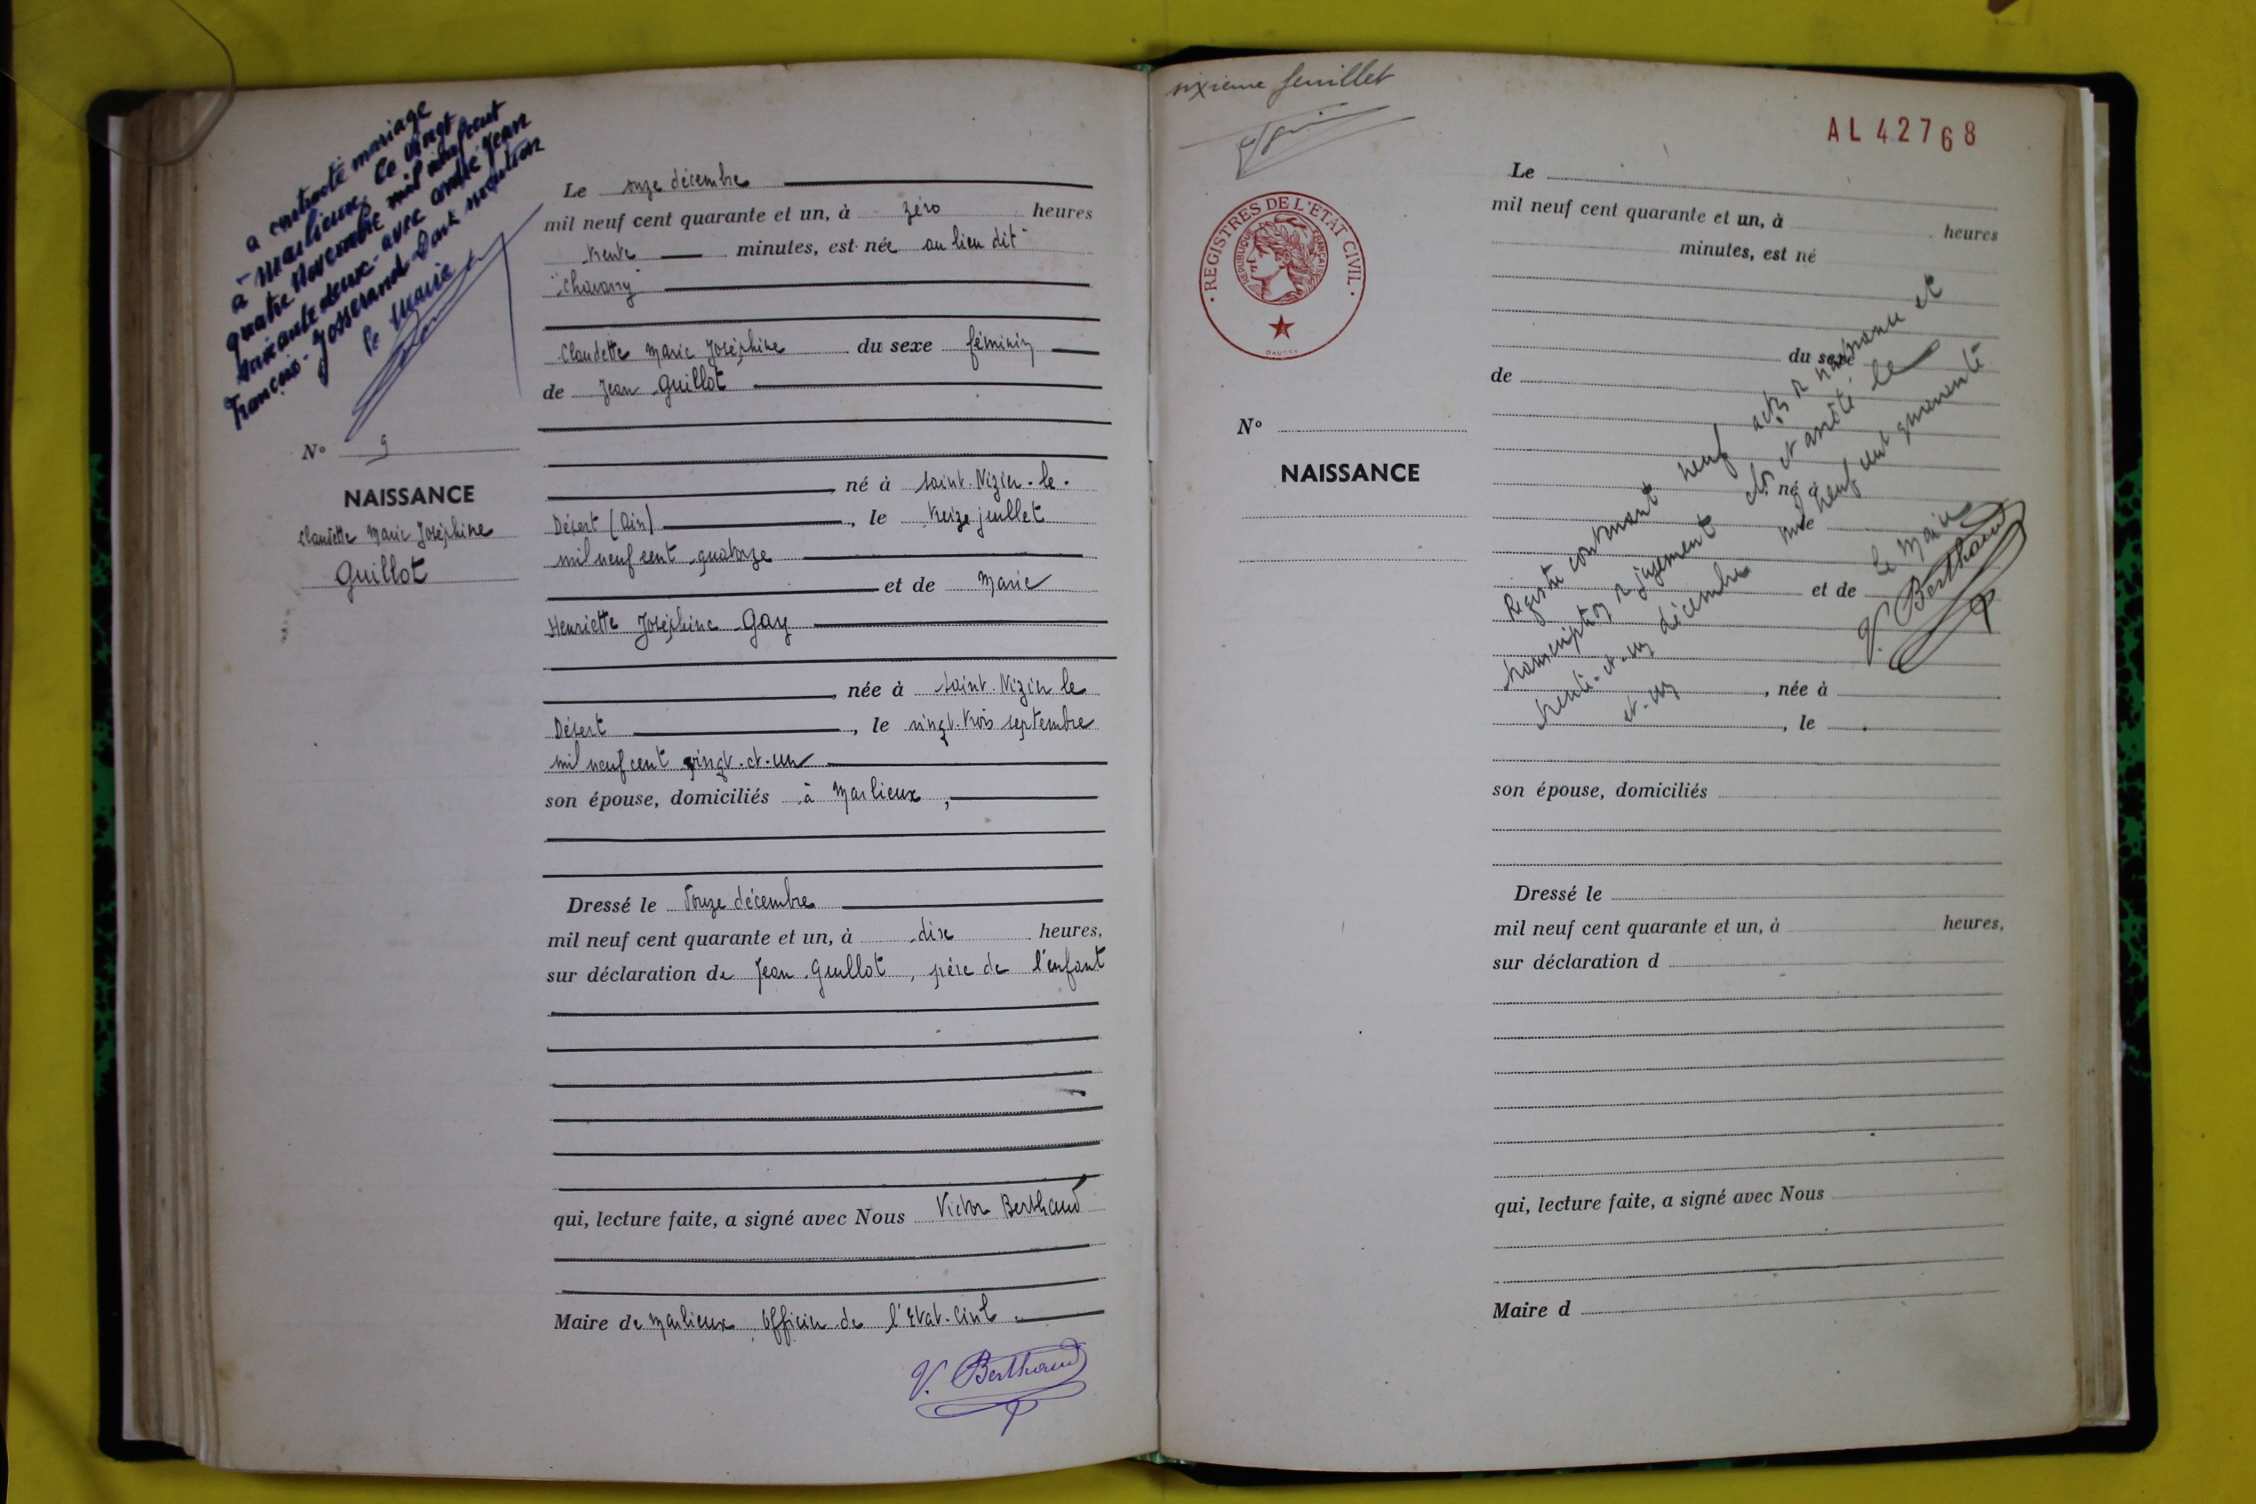 a contracté mariage
à Marlieux, le vingt
quatre Novembre mil neuf cent
soixante deux avec André Jean
François Josserand Dont mention
le Maire
N° 9
NAISSANCE
Claudette Marie Joséphine
Guillot
Le onze décembre
mil neuf cent quarante et un, à zéro heures
trente minutes, est née au lieu dit
"Chavany"
Claudette Marie Joséphine du sexe féminin
de Jean Guillot
né à Saint-Nizier-le-
Désert (Ain), le treize juillet
mil neuf cent quatorze
et de Marie
Henriette Joséphine Gay
, née à Saint-Nizier le
Désert, le vingt-trois septembre
mil neuf cent vingt-et-un
son épouse, domiciliés à Marlieux,
Dressé le Douze décembre
mil neuf cent quarante et un, à dix heures,
sur déclaration de Jean Guillot, père de l'enfant
qui, lecture faite, a signé avec Nous Victor Berthaud
Maire de Marlieux Officier de l'Etat-Civil.
V. Berthaud
sixième feuillet
AL 42768
REGISTRES DE L'ETAT CIVIL
REPUBLIQUE FRANÇAISE
N°
NAISSANCE
Le
mil neuf cent quarante et un, à heures
minutes, est né
du sexe
de
, né à
, le
et de
, née à
, le
son épouse, domiciliés
Dressé le
mil neuf cent quarante et un, à heures,
sur déclaration d
qui, lecture faite, a signé avec Nous
Maire d
Registre contenant neuf actes de naissance et
transcription de jugement clos et arrêté le
trente-et-un décembre mil neuf cent quarante
et-un
Le Maire
V. Berthaud